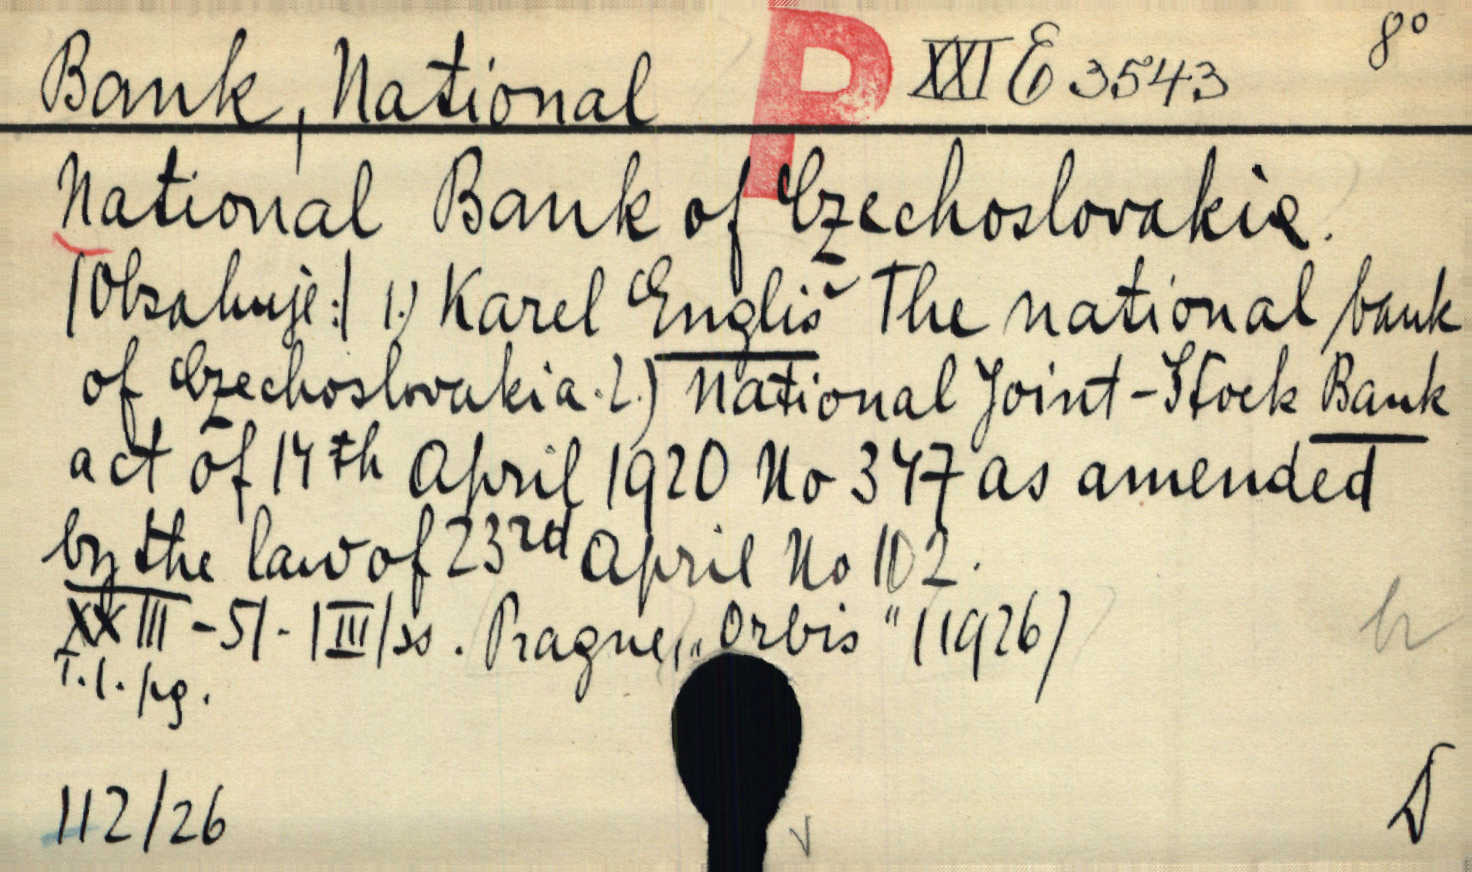 Bank, National P XXI E 3543 8°
National Bank of Czechoslovakia.
(Obsahuje:) 1.) Karel Engliš The national bank
of Czechoslovakia. 2.) National Joint-Stock Bank
act of 14th April 1920 No 347 as amended
by the law of 23rd April No 102.
XXIII - 51 - |III| ss. Prague, „Orbis" (1926)
T. l. pg.
112/26